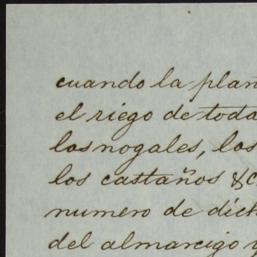 cuando la plan
el riego de toda
los nogales, los
los castaños &c
numero de dich
del almarcigo y